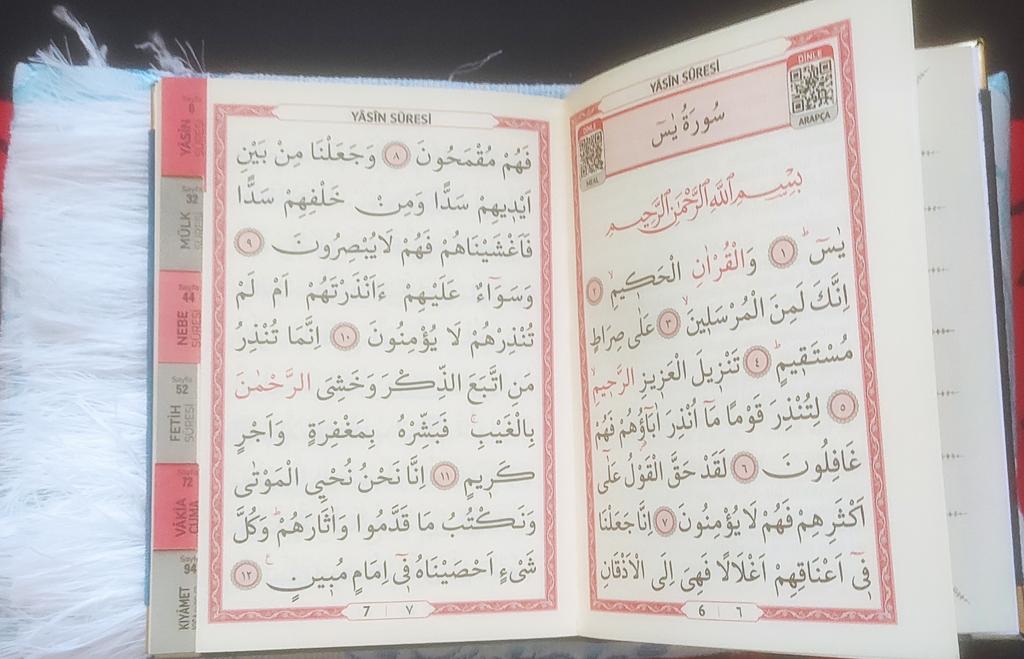 YÂSÎN SÛRESİ
DİNLE
ARAPÇA
سُورَةُ يٰسٓ
DİNLE
MEAL
بِسْمِ اللّٰهِ الرَّحْمٰنِ الرَّحٖيمِ
يٰسٓ ۚ ﴿١﴾ وَالْقُرْاٰنِ الْحَكٖيمِ ۙ ﴿٢﴾
اِنَّكَ لَمِنَ الْمُرْسَلٖينَ ۙ ﴿٣﴾ عَلٰى صِرَاطٍ
مُسْتَقٖيمٍ ۜ ﴿٤﴾ تَنْزٖيلَ الْعَزٖيزِ الرَّحٖيمِ ۙ
﴿٥﴾ لِتُنْذِرَ قَوْمًا مَٓا اُنْذِرَ اٰبَٓاؤُ۬هُمْ فَهُمْ
غَافِلُونَ ﴿٦﴾ لَقَدْ حَقَّ الْقَوْلُ عَلٰٓى
اَكْثَرِهِمْ فَهُمْ لَا يُؤْمِنُونَ ﴿٧﴾ اِنَّا جَعَلْنَا
فٖٓى اَعْنَاقِهِمْ اَغْلَالًا فَهِىَ اِلَى الْاَذْقَانِ
6 | ٦
YÂSÎN SÛRESİ
فَهُمْ مُقْمَحُونَ ﴿٨﴾ وَجَعَلْنَا مِنْ بَيْنِ
اَيْدٖيهِمْ سَدًّا وَمِنْ خَلْفِهِمْ سَدًّا
فَاَغْشَيْنَاهُمْ فَهُمْ لَا يُبْصِرُونَ ﴿٩﴾
وَسَوَٓاءٌ عَلَيْهِمْ ءَاَنْذَرْتَهُمْ اَمْ لَمْ
تُنْذِرْهُمْ لَا يُؤْمِنُونَ ﴿١٠﴾ اِنَّمَا تُنْذِرُ
مَنِ اتَّبَعَ الذِّكْرَ وَخَشِىَ الرَّحْمٰنَ
بِالْغَيْبِ ۚ فَبَشِّرْهُ بِمَغْفِرَةٍ وَاَجْرٍ
كَرٖيمٍ ﴿١١﴾ اِنَّا نَحْنُ نُحْيِى الْمَوْتٰى
وَنَكْتُبُ مَا قَدَّمُوا وَاٰثَارَهُمْ ۜ وَكُلَّ
شَىْءٍ اَحْصَيْنَاهُ فٖٓى اِمَامٍ مُبٖينٍ ۟ ﴿١٢﴾
7 | ٧
Sayfa
6
YÂSÎN
SÛRESİ
Sayfa
32
MÜLK
SÛRESİ
Sayfa
44
NEBE
SÛRESİ
Sayfa
52
FETİH
SÛRESİ
Sayfa
72
VÂKIA
CUMA
Sayfa
94
KIYÂMET